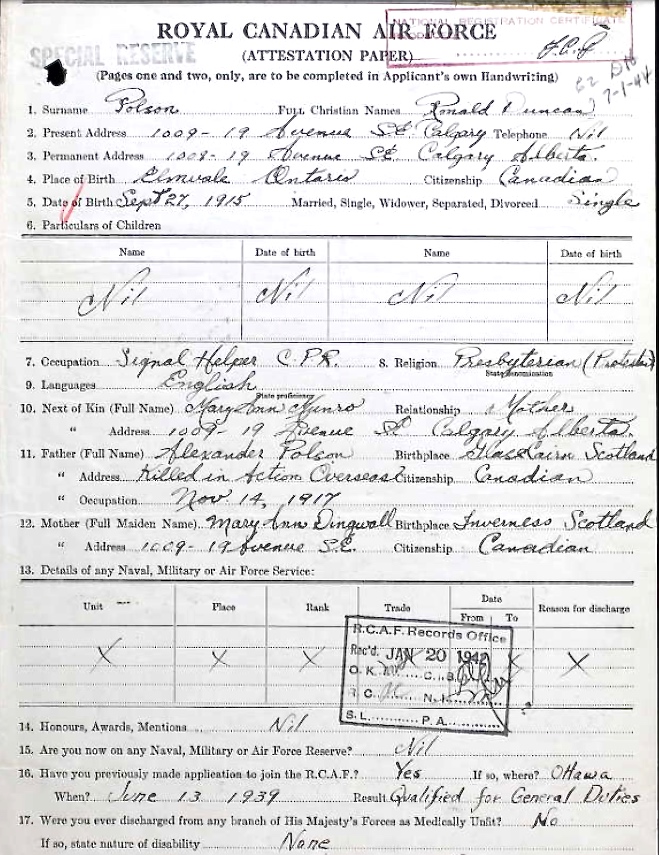 ROYAL CANADIAN AIR FORCE
NATIONAL REGISTRATION CERTIFICATE
SPECIAL RESERVE
(ATTESTATION PAPER)
(Pages one and two, only, are to be completed in Applicant's own Handwriting)
7-1-44
1. Surname Polson Full Christian Names Ronald Duncan
2. Present Address 1009-19 Avenue SE Calgary Telephone Nil
3. Permanent Address 1009-19 Avenue SE Calgary Alberta.
4. Place of Birth Elmvale Ontario Citizenship Canadian
5. Date of Birth Sept 27, 1915 Married, Single, Widower, Separated, Divorced Single
6. Particulars of Children
Name Date of birth Name Date of birth
Nil Nil Nil Nil
7. Occupation Signal Helper C.P.R. 8. Religion Presbyterian (Protestant)
State denomination
9. Languages English
State proficiency
10. Next of Kin (Full Name) Mary Ann Munro Relationship Mother
" Address 1009-19 Avenue SE Calgary Alberta.
11. Father (Full Name) Alexander Polson Birthplace Scotland
" Address Killed in Action Overseas Citizenship Canadian
" Occupation Nov 14, 1917
12. Mother (Full Maiden Name) Mary Ann Dingwall Birthplace Inverness Scotland
" Address 1009-19 Avenue S.E. Citizenship Canadian
13. Details of any Naval, Military or Air Force Service:
Unit Place Rank Trade Date Reason for discharge
From To
X X X X X
R.C.A.F. Records Office
Rec'd. JAN 20 1942
O.K. C.I.B.
R.C. N.
S.L. P.A.
14. Honours, Awards, Mentions Nil
15. Are you now on any Naval, Military or Air Force Reserve? Nil
16. Have you previously made application to join the R.C.A.F.? Yes If so, where? Ottawa
When? June 13 1939 Result Qualified for General Duties
17. Were you ever discharged from any branch of His Majesty's Forces as Medically Unfit? No
If so, state nature of disability None